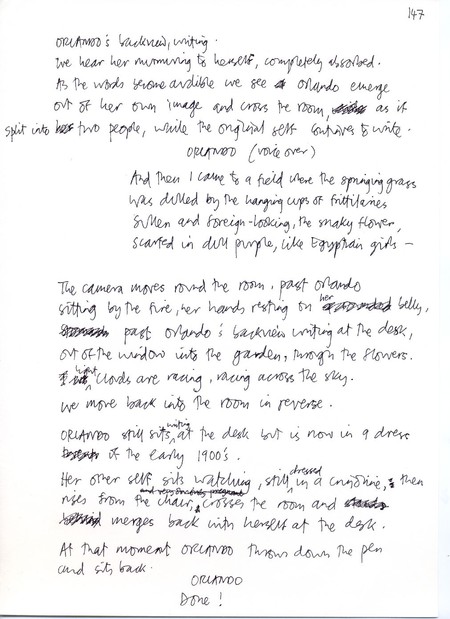 147
ORLANDO's backview, writing.
We hear her murmuring to herself, completely absorbed.
As the words become audible we see Orlando emerge
out of her own image and cross the room, as if
split into two people, while the original self continues to write.
ORLANDO (voice over)
And then I came to a field where the springing grass
was dulled by the hanging cups of fritillaries
Sullen and foreign-looking, the snaky flower,
scarfed in dull purple, like Egyptian girls —
The camera moves round the room, past Orlando
sitting by the fire, her hands resting on her belly,
past Orlando's backview writing at the desk,
out of the window into the garden, through the flowers.
Light clouds are racing, racing across the sky.
We move back into the room in reverse.
ORLANDO still sits, writing at the desk but is now in a dress
of the early 1900's.
Her other self sits watching, still dressed in a crinoline, then
rises from the chair, crosses the room and
merges back with herself at the desk.
At that moment ORLANDO throws down the pen
and sits back.
ORLANDO
Done!